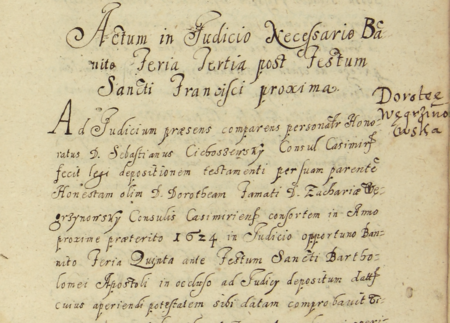 Actum in Judicio Necessario Ba
nito Feria Tertia post Festum
Sancti Francisci proxima.
Dorotee
Węgrzino
wska
Ad Judicium præsens comparens personaltr Hono
ratus D. Sebastianus Cieboszewsky Consul Casimirs
fecit legi depositionem testamenti per suam parente
Honestam olim D. Dorotheam Famati D. Zachariæ We
grzynowsky Consulis Casimiriens consortem in Anno
proxime præterito 1624 in Judicio opportuno Ban
nito Feria Quinta ante Festum Sancti Bartho
lomei Apostoli in occluso ad Judicy depositum
cuius aperiendi potestatem sibi datam comprobavit